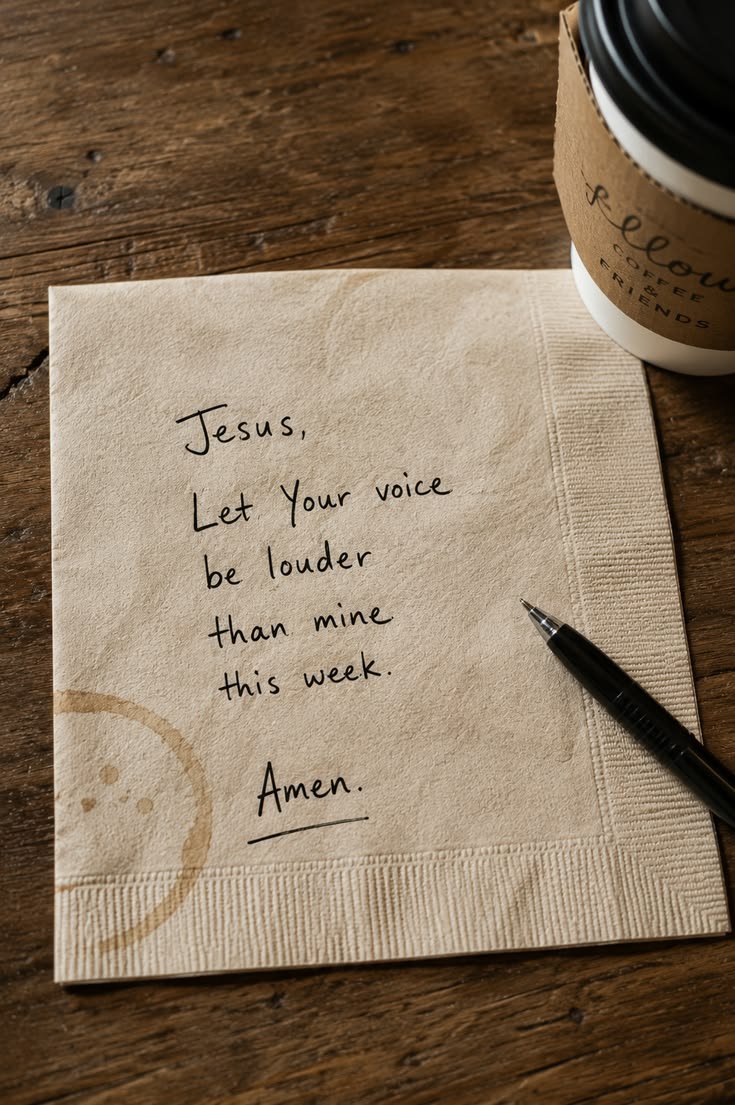 Jesus,
Let Your voice
be louder
than mine
this week.
Amen.
COFFEE
&
FRIENDS